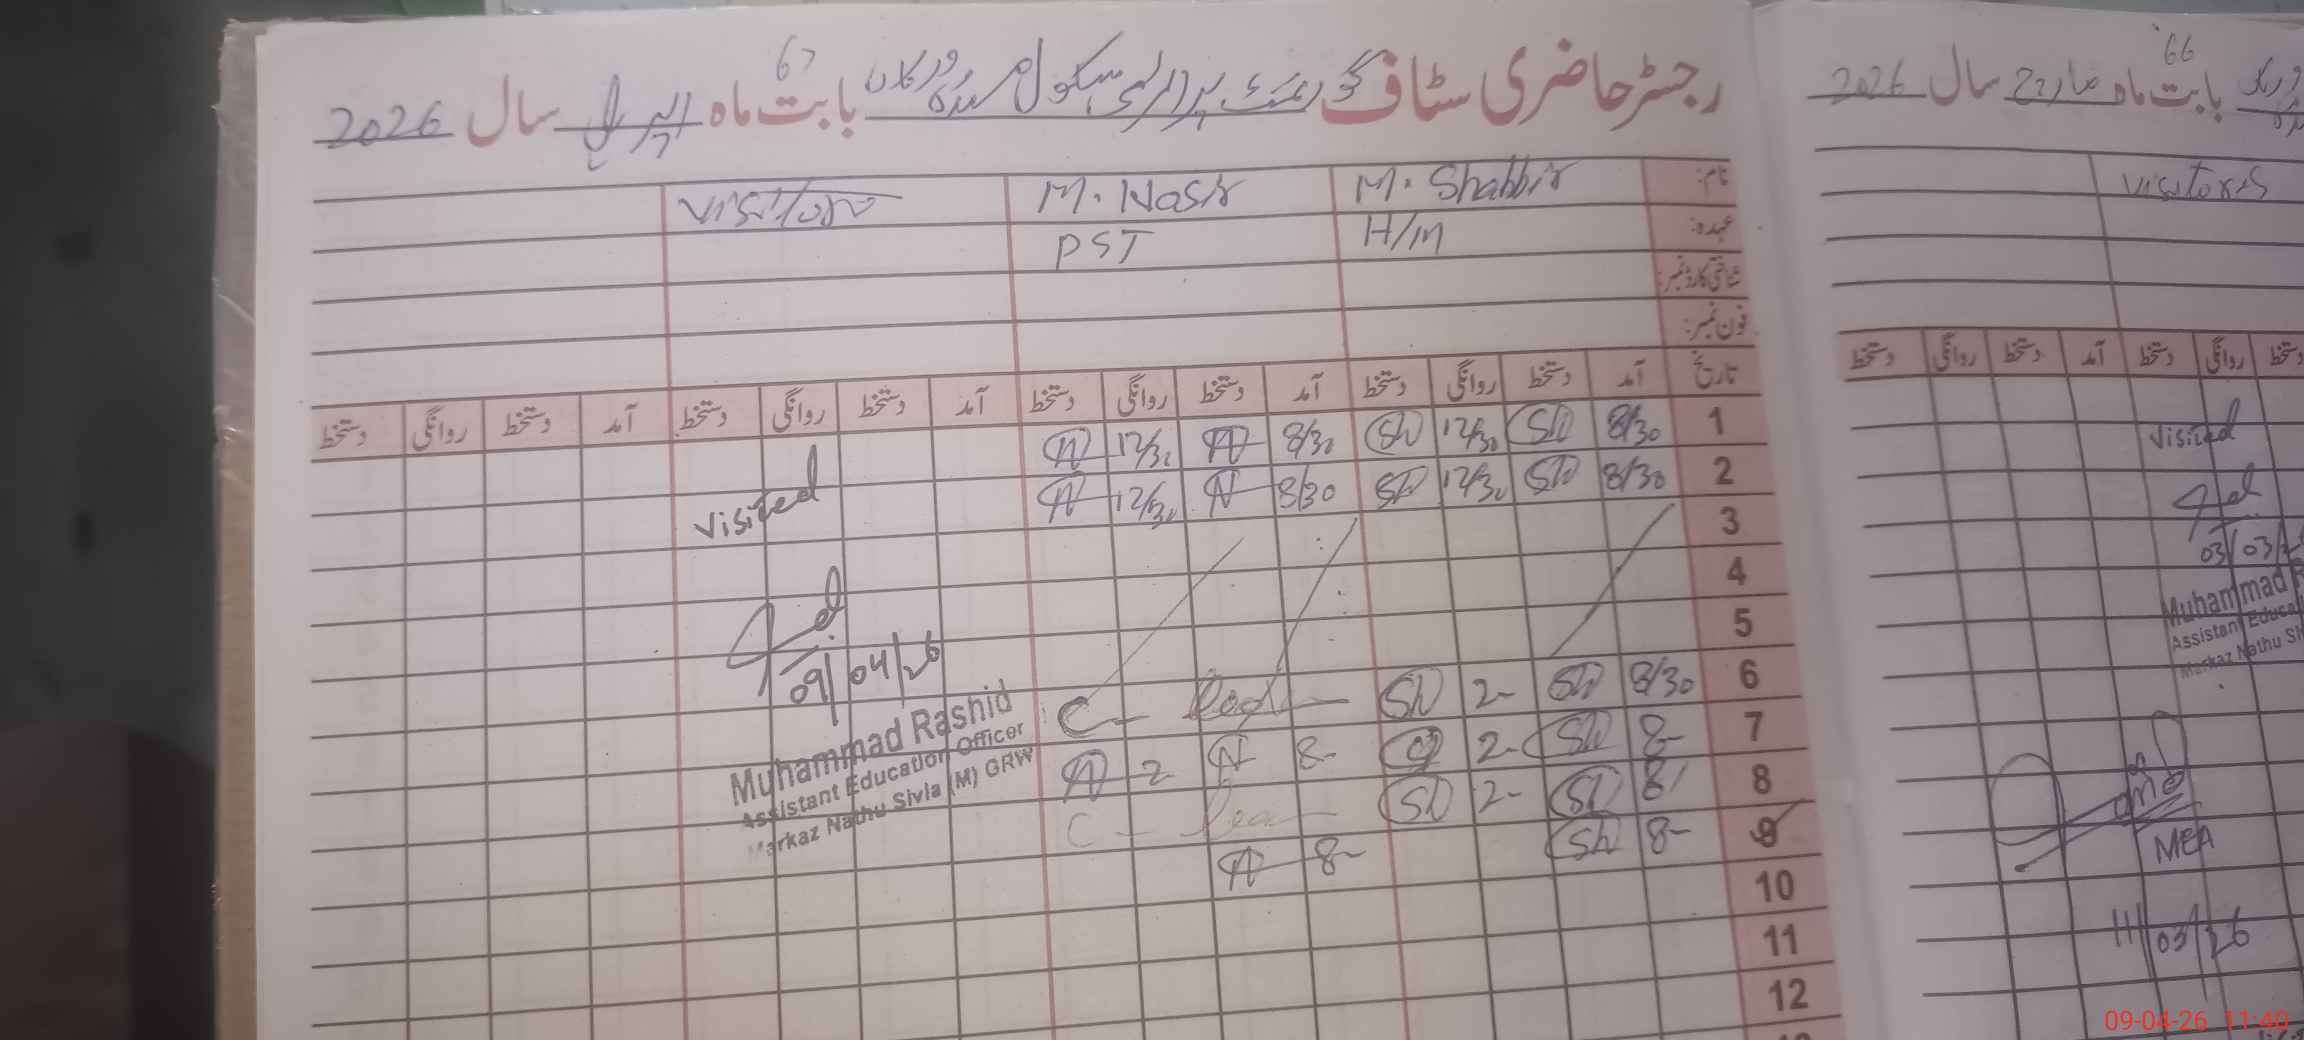 67
رجسٹر حاضری سٹاف گورنمنٹ پرائمری سکول بابت ماہ اپریل سال 2026
نام: M. Shabbir M. Nasir Visitors
عہدہ: H/M PST
شناختی کارڈ نمبر:
فون نمبر:
تاریخ آمد دستخط روانگی دستخط آمد دستخط روانگی دستخط آمد دستخط روانگی دستخط آمد دستخط روانگی دستخط
1 8/30 Sh 12/30 Sh 8/30 N 12/30 N
2 8/30 Sh 12/30 Sh 8/30 N 12/30 N
3
4
5
6 8/30 Sh 2- Sh C- Leave
7 8- Sh 2- 8- N 2 N
8 8/ Sh 2- Sh C- Lea
9 8- Sh 8- N
10
11
12
Visited
09/04/26
Muhammad Rashid
Assistant Education Officer
Markaz Nathu Sivia (M) GRW
66
بابت ماہ مارچ سال 2026
Visitors
دستخط روانگی دستخط آمد دستخط روانگی دستخط
Visited
03/03/
Muhammad R
Assistant Educa
Markaz Nathu Si
MEA
11/03/26
09-04-26 11:40